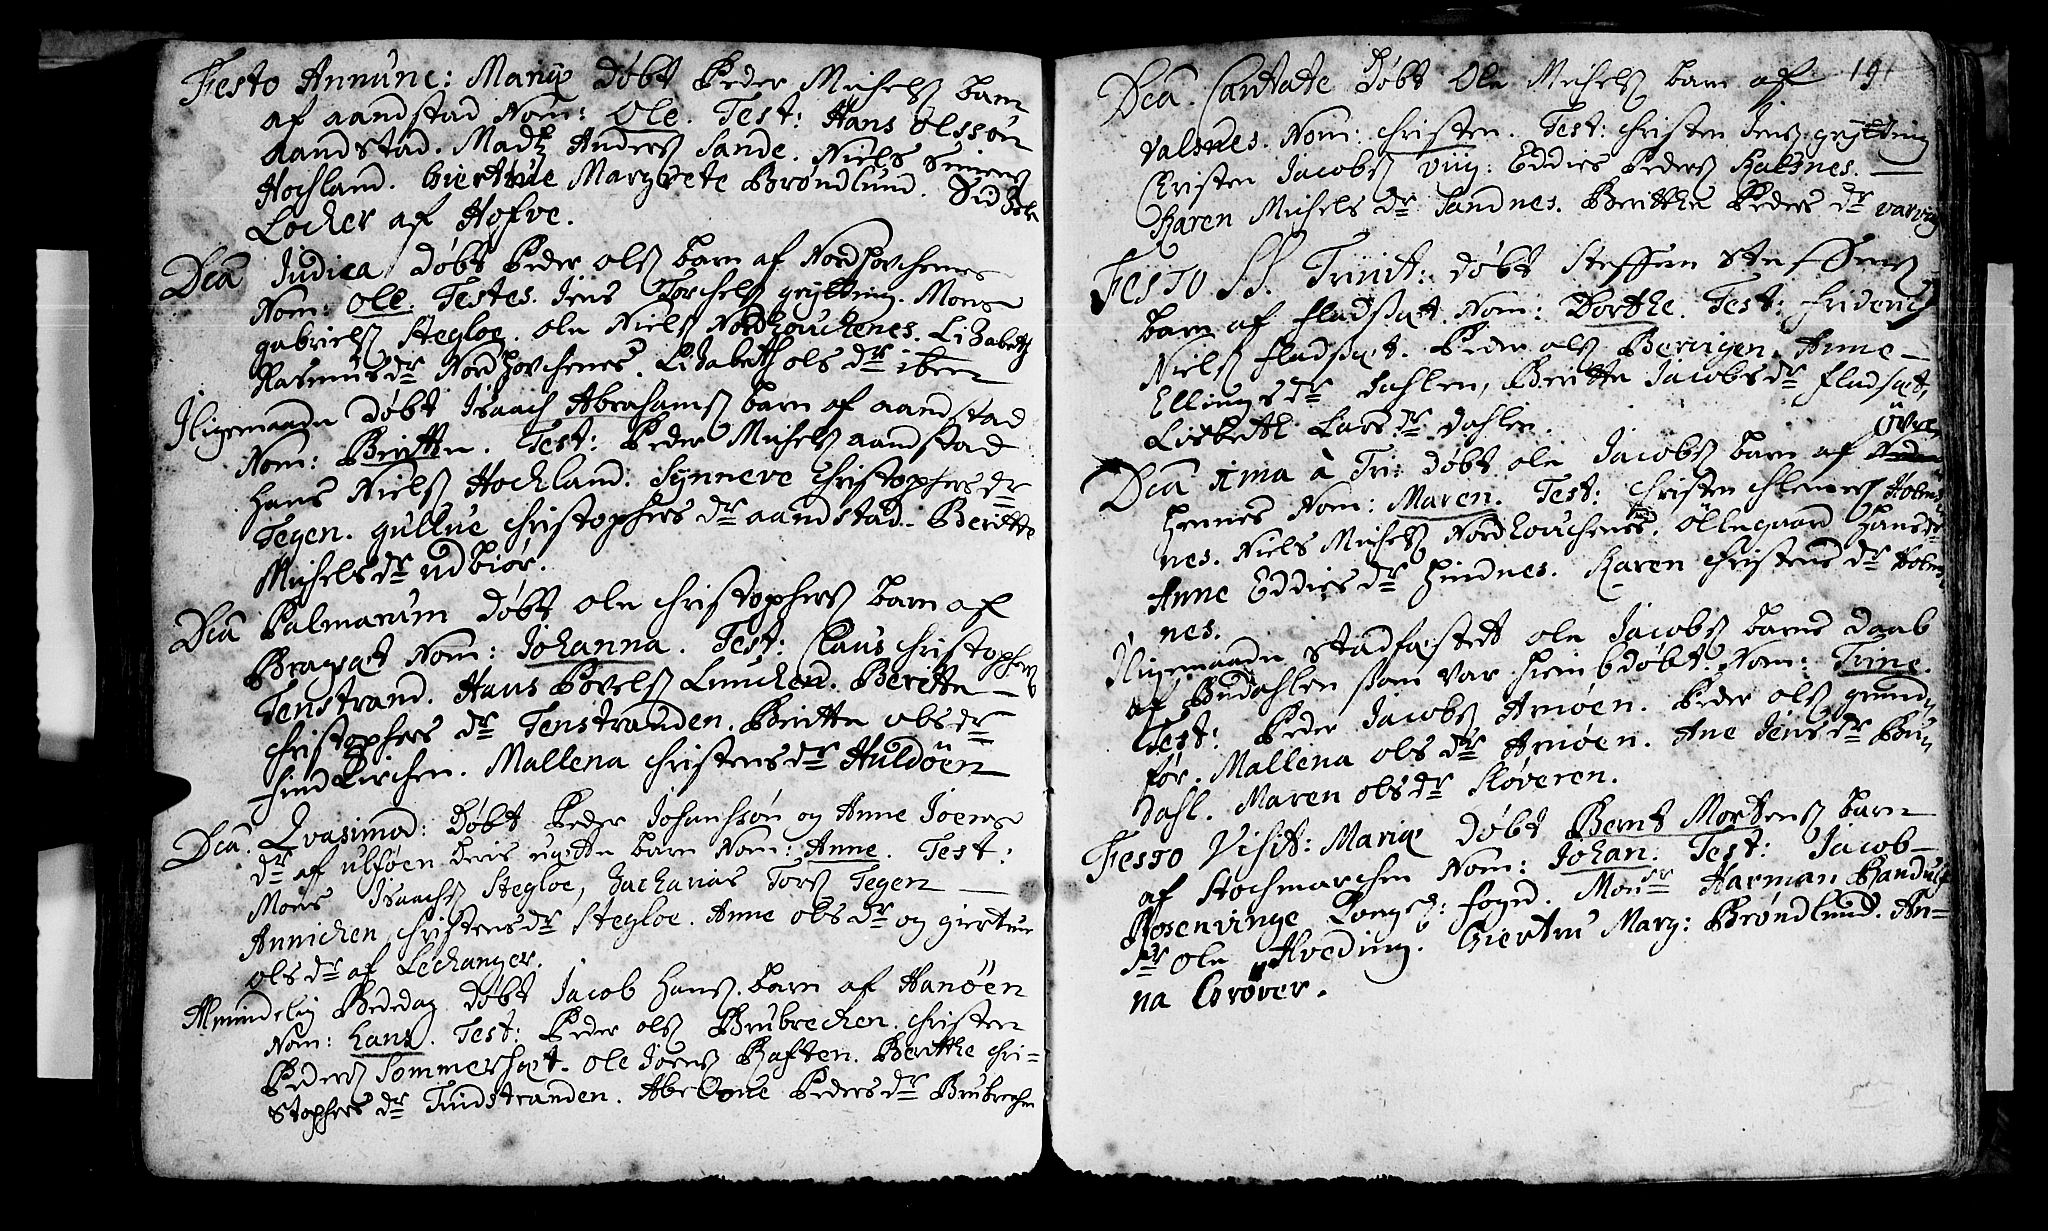 Festo Annunc: Mariæ Døbt Peder Michelß barn
af aandstad Nom: Ole. Test: Hans Olssøn
aandstad. Madtz Anderß Sande. Niels Simens
Hochland. Giertrue Margrete Brøndlund. Sidzele
Locher af Hofve.
Dca Judica Døbt Peder Olß barn af Nordhovchenes
Nom: Ole. Testes. Jens Torchelß grytting. Mons
gabrielß Stegloe. Ole Nielß Nordhouchenes. Lizabeth
Rasmus dr Nordhovchenes. Lizabeth ols dr ibm
Iligemaade døbt Isaach Abrahamß barn af aandstad
Nom: Beritte. Test: Peder Michelß aandstad
Hans Nielß Hochland. Synneve Christophers dr
Tegen. gullue Christophers dr aandstad. Beritte
Michels dr udbiør.
Dca Palmarum Døbt Ole Christopherß barn af
Bragsæt Nom: Johanna. Test: Claus Christopherß
Tenstrand. Hans Povelß Lunchen. Beritte
Christophers dr Tenstranden. Beritte ols dr
Finckirchen. Mallena Christens dr Huldöen
Dca. Qvasimod: Døbt Peder Johanssøn og Anne Joens
dr af ulføen deris uægte barn Nom: Anne. Test:
Mons Isaachß Stegloe, Zacharias Torß Tegen
Annichen Christens dr Stegloe. Anne ols dr og giertrue
ols dr af Lechanger.
Almindelig Bededag døbt Jacob Hanß. barn af Hanöen
Nom: Hans. Test: Peder olß Brubrechen. Christen
Pederß Sommersæt. Ole Joenß Haften. Beritthe Chri-
stophers dr Tindstranden. Abelone Peders dr Brubrechen
191
Dca. Cantate Døbt Ole Michelß barn af
Valsnes. Nom: Christen. Test: Christen Jenß grytting
Christen Jacobß Vvig: Eddies Pederß Halsnes.
Karen Michels dr Sandnes. Beritthe Peders dr varvig
Festo SS. Trinit: døbt Steffen Steffens
barn af Fladsæt. Nom: Dorthe. Test: Friderich
Nielß Fladsæt. Peder olß Bervigen. Anne
Ellings dr Dahlen, Beritte Jacobs dr Fladsæt,
Lisbeth Lars dr Dahlen.
Övre
Dca 1ma à Tri: døbt ole Jacobß barn af
Hennes Nom: Maren. Test: Christen Clemetß Holm
nes. Niels Michelß Nordhouchenes. Öllegaard Hans dr
Anne Eddies dr Hindnes. Karen Christens dr Holm
nes.
Iligemaade stadfæstedt ole Jacobß barns daab
af Budahlen som var hiemb døbt. Nom: Trine.
Test: Peder Jacobß Arnöen. Peder olß grund
før. Mallena ols dr Arnöen. Ane Jens dr Bu
Dahl. Maren ols dr Skoveren.
Festo Visit: Mariæ Døbt Bernt Mortenß barn
af Stochmarchen Nom: Johan. Test: Jacob
Rosenvinge Konge: fogd. Monsr Harman Randulf
Sr Ole Hveding. Giertru Marg: Brøndlund. An-
na Corøver.